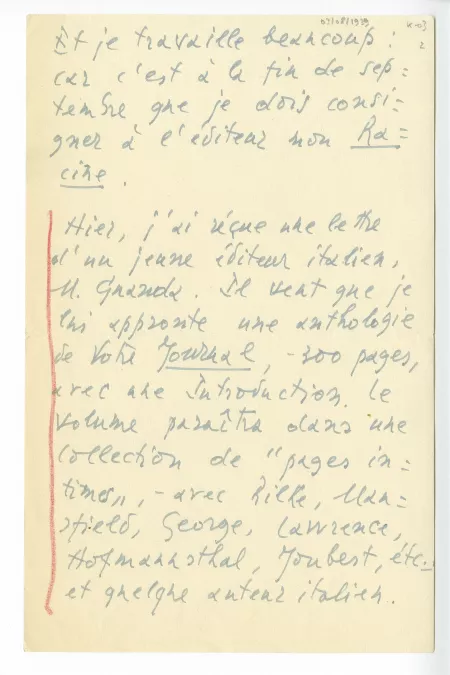 07/08/1939
K-03
2
Et je travaille beaucoup :
car c'est à la fin de sep=
tembre que je dois consi-
gner à l'éditeur mon Ra=
cine.
Hier, j'ai réçue une lettre
d'un jeune éditeur italien,
M. Guanda. Il veut que je
lui appronte une anthologie
de Votre Journal, -300 pages,
avec une Introduction. Le
volume paraîtra dans une
collection de "pages in=
times", - avec Rilke, Man=
sfield, George, Lawrence,
Hofmannsthal, Joubert, etc..
et quelque auteur italien.